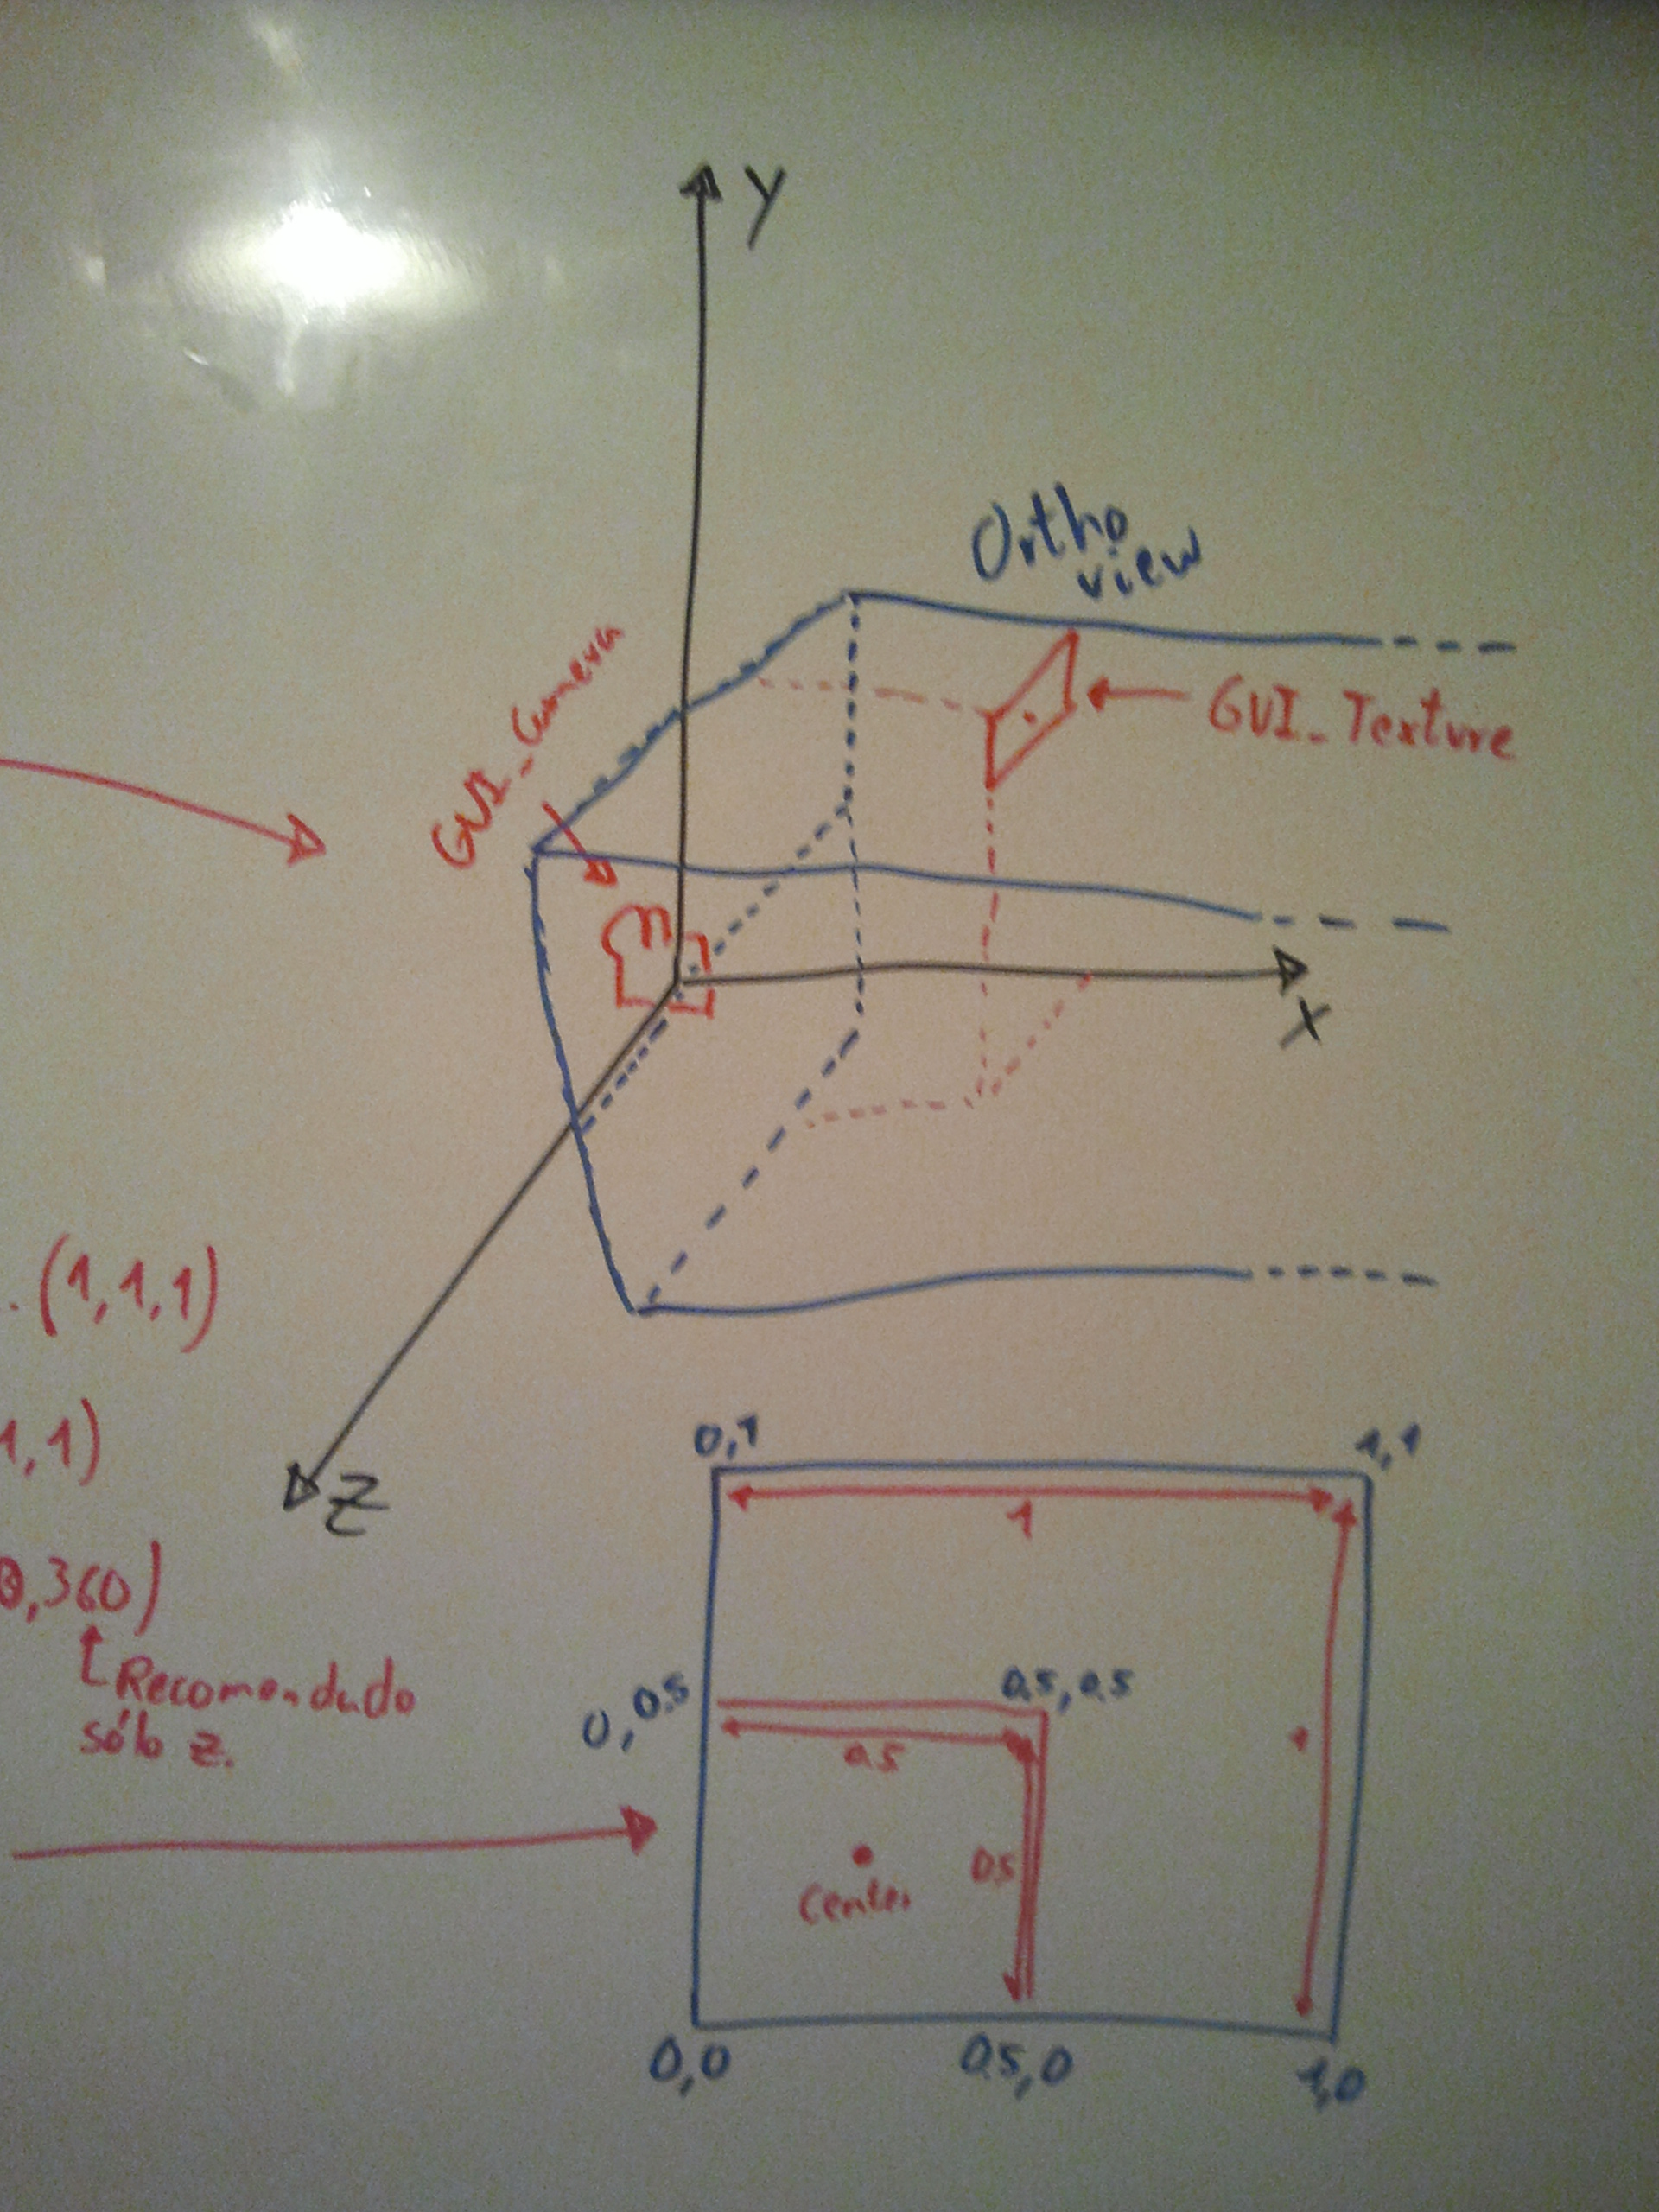 y
Ortho
view
GUI_Camera
GUI_Texture
x
. (1,1,1)
1,1)
z
,360)
Recomendado
sólo z.
0,1
1,1
1
0,0.5
0.5,0.5
0.5
0.5
Center
0,0
0.5,0
1,0